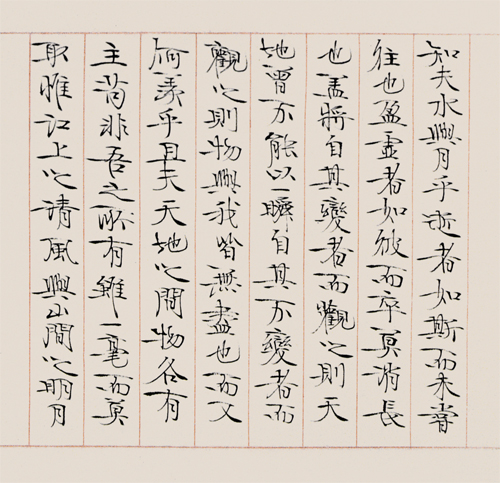 知夫水與月乎逝者如斯而未嘗
往也盈虛者如彼而卒莫消長
也盖將自其變者而觀之則天
地曾不能以一瞬自其不變者而
觀之則物與我皆無盡也而又
何羨乎且夫天地之間物各有
主苟非吾之所有雖一毫而莫
取惟江上之清風與山間之明月